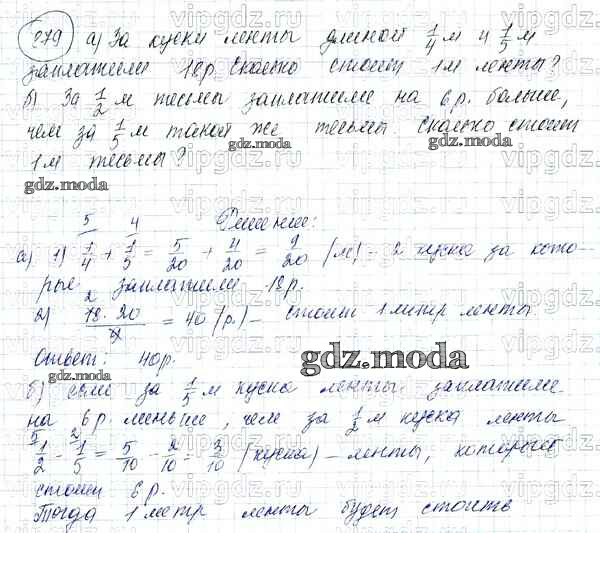 279 а) За куски ленты длиной 1/4 м и 1/5 м
заплатили 18р. Сколько стоит 1м ленты?
б) За 1/2 м тесьмы заплатили на 6р. больше,
чем за 1/5 м такой же тесьмы. Сколько стоит
1м тесьмы?
gdz.moda
gdz.moda
Решение:
а) 1) 1/4 + 1/5 = 5/20 + 4/20 = 9/20 (м) - 2 куска за кото-
рые заплатили 18р.
2) 18·20/9 = 40 (р.) - стоит 1 метр ленты.
Ответ: 40р.
gdz.moda
gdz.moda
б) если за 1/5 м куска ленты заплатили
на 6р. меньше, чем за 1/2 м куска ленты
1/2 - 1/5 = 5/10 - 2/10 = 3/10 (куска) - ленты, которые
стоят 6р.
Тогда 1 метр ленты будет стоить